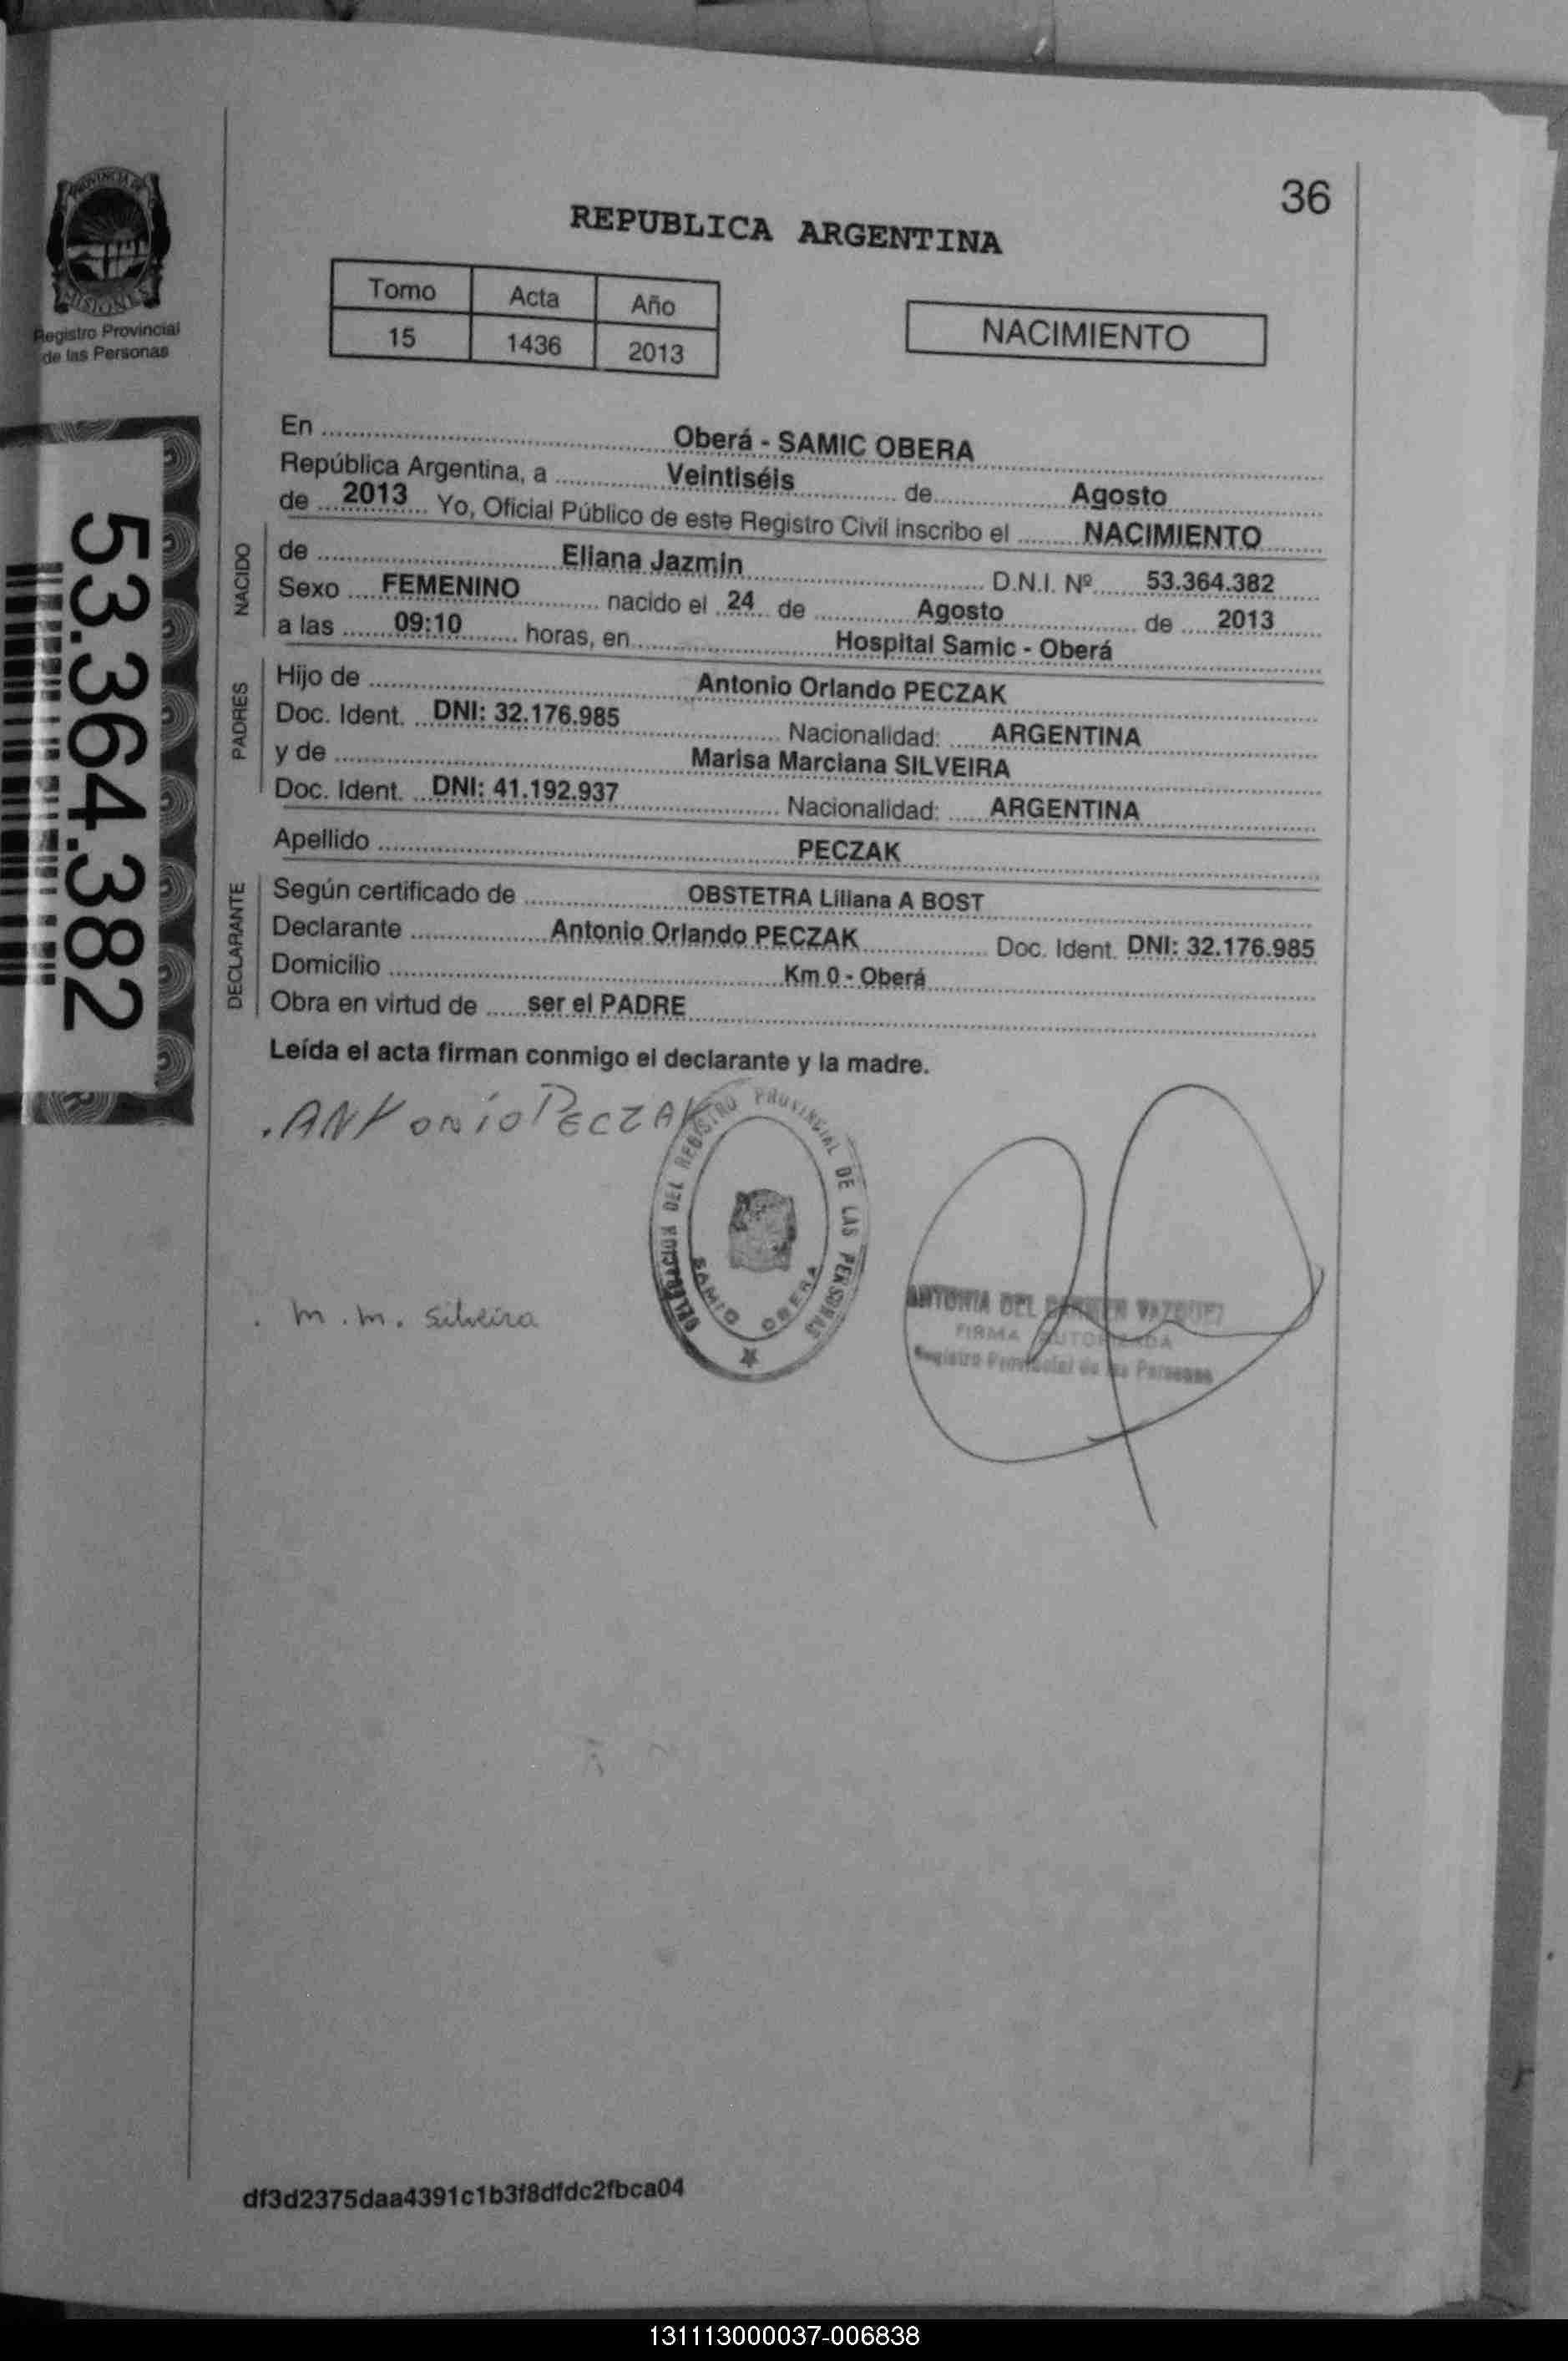 36
REPUBLICA ARGENTINA
PROVINCIA DE
MISIONES
Registro Provincial
de las Personas
Tomo Acta Año
15 1436 2013
NACIMIENTO
53.364.382
En Oberá - SAMIC OBERA
República Argentina, a Veintiséis de Agosto
de 2013 Yo, Oficial Público de este Registro Civil inscribo el NACIMIENTO
NACIDO
de Eliana Jazmin D.N.I. Nº 53.364.382
Sexo FEMENINO nacido el 24 de Agosto de 2013
a las 09:10 horas, en Hospital Samic - Oberá
PADRES
Hijo de Antonio Orlando PECZAK
Doc. Ident. DNI: 32.176.985 Nacionalidad: ARGENTINA
y de Marisa Marciana SILVEIRA
Doc. Ident. DNI: 41.192.937 Nacionalidad: ARGENTINA
Apellido PECZAK
DECLARANTE
Según certificado de OBSTETRA Liliana A BOST
Declarante Antonio Orlando PECZAK Doc. Ident. DNI: 32.176.985
Domicilio Km 0 - Oberá
Obra en virtud de ser el PADRE
Leída el acta firman conmigo el declarante y la madre.
.ANtonío PECZAK
DELEGACION DEL REGISTRO PROVINCIAL DE LAS PERSONAS
SAMIC OBERA
. m. m. Silveira
ANTONIA DEL CARMEN VAZQUEZ
FIRMA AUTORIZADA
Registro Provincial de las Personas
df3d2375daa4391c1b3f8dfdc2fbca04
131113000037-006838